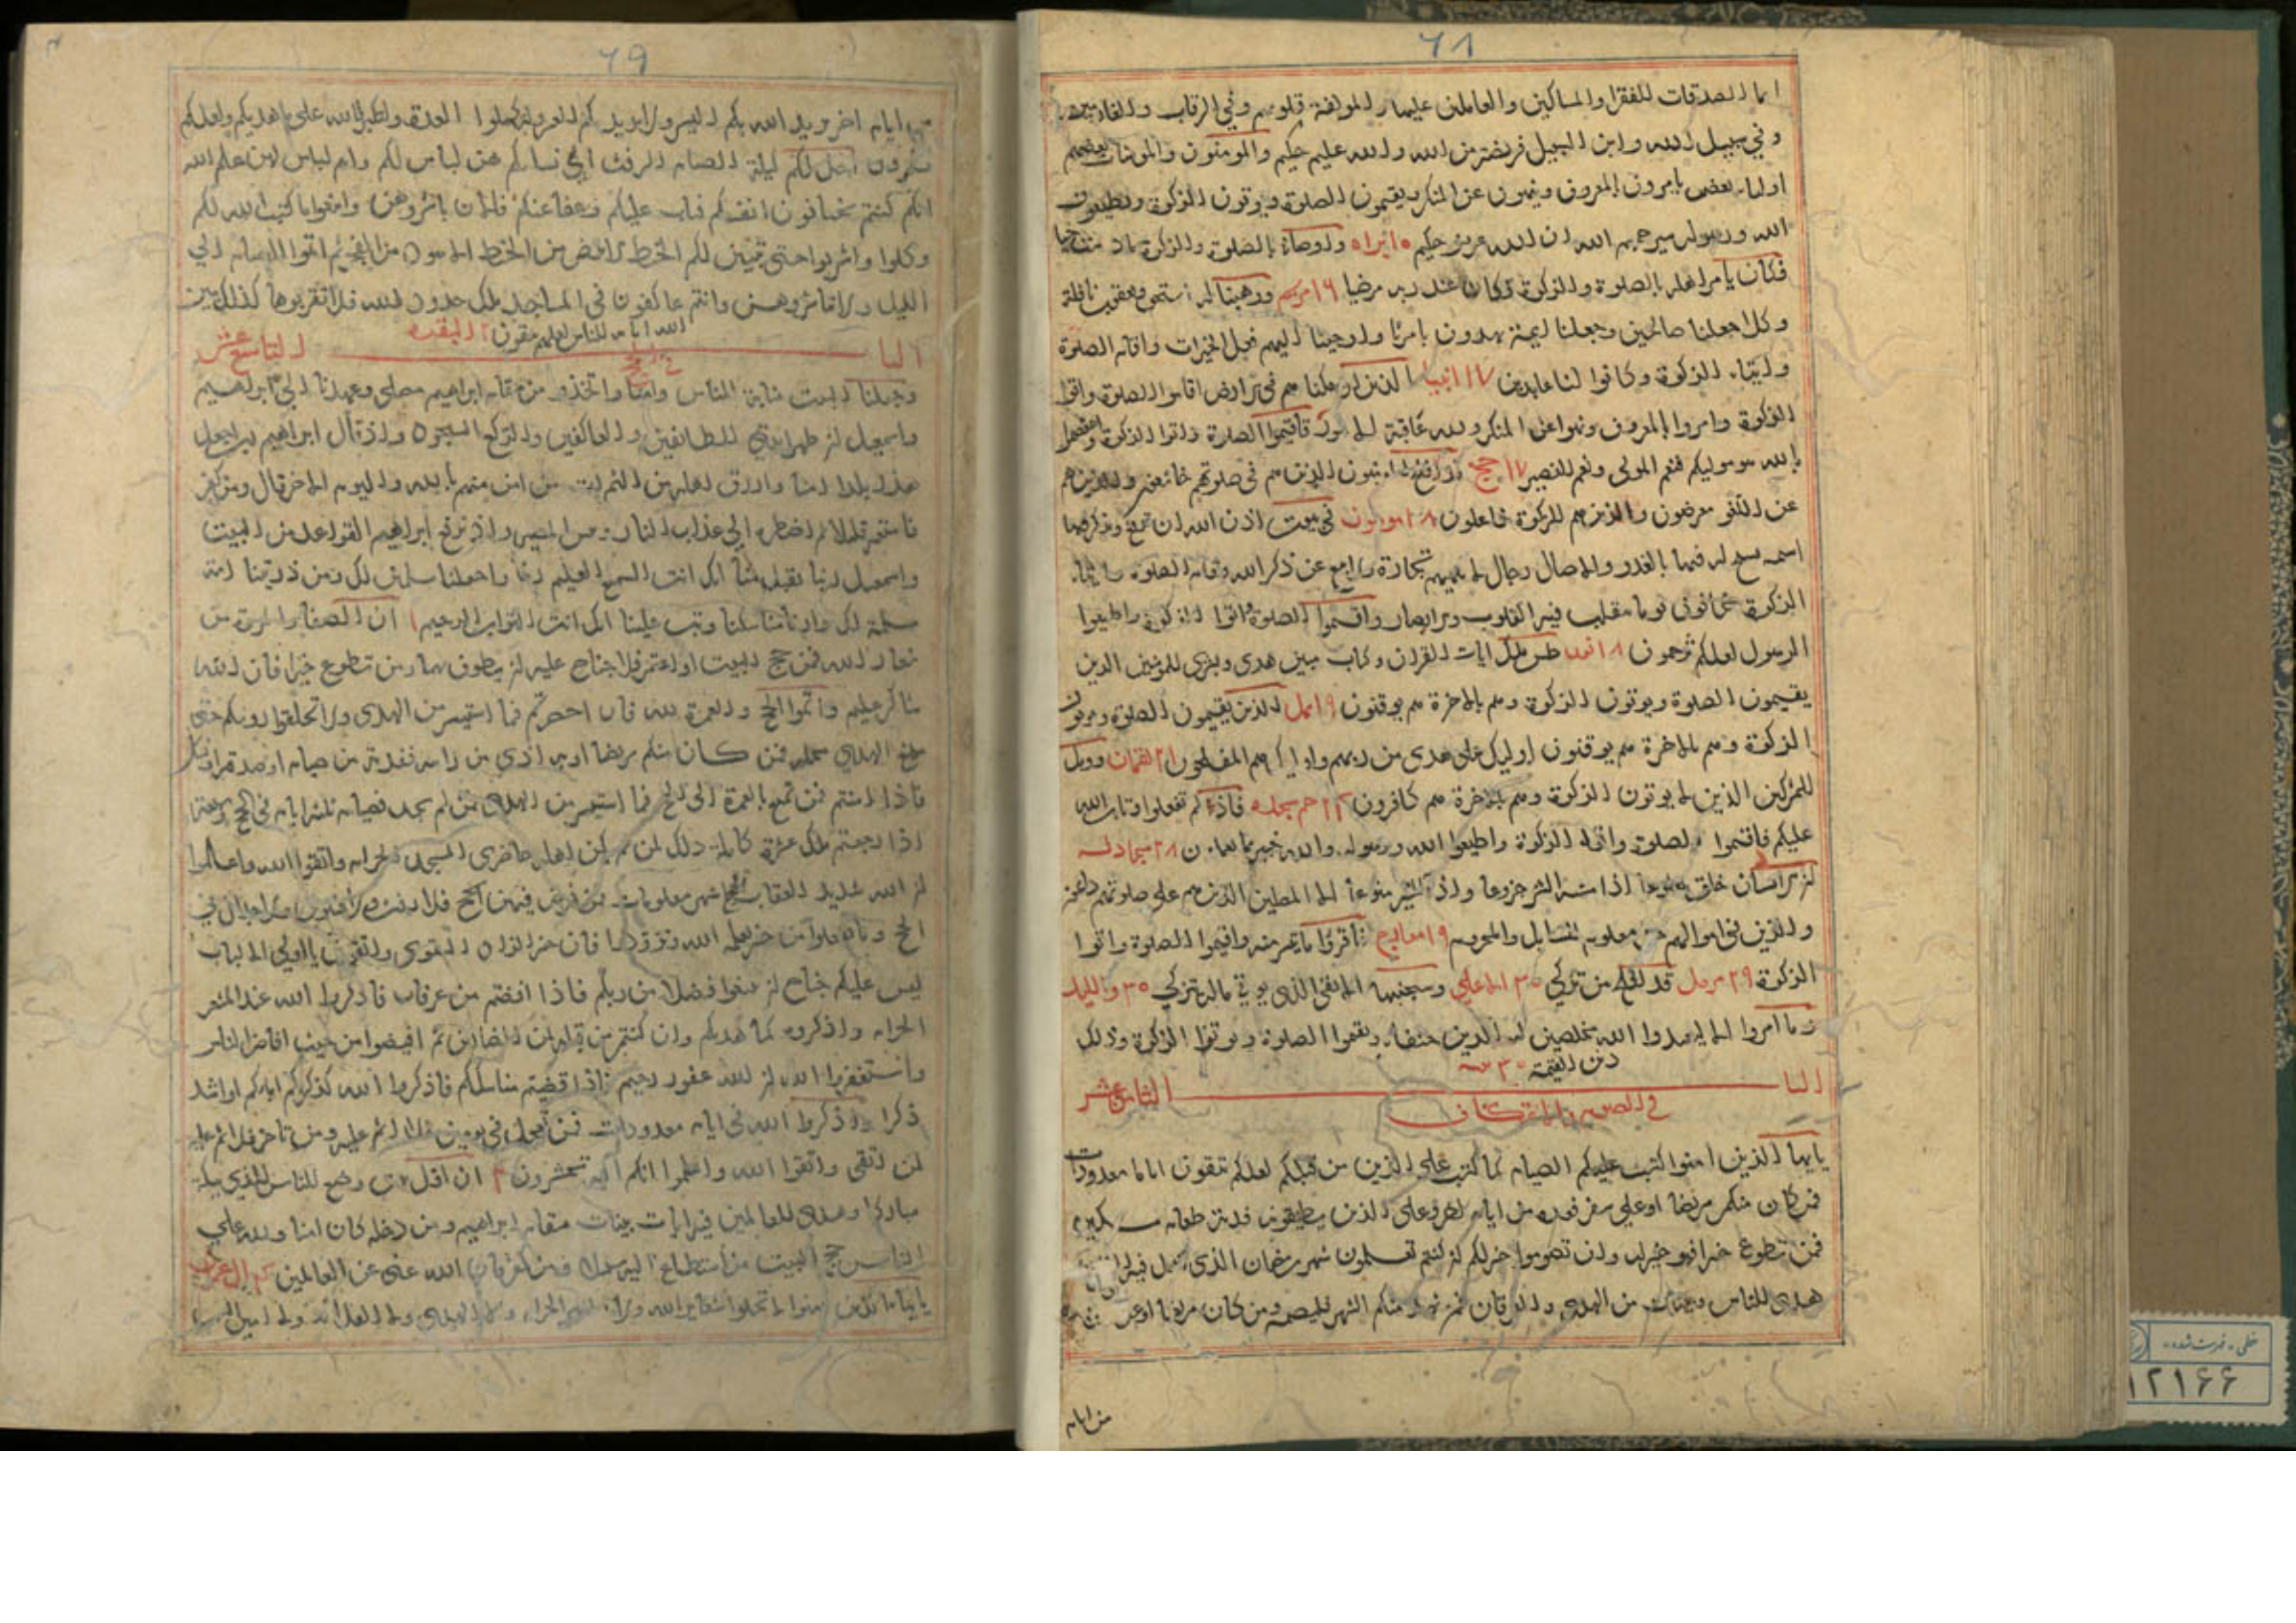 ٦٨
انما الصدقات للفقرا والمساكين والعاملين عليها والمولفة قلوبهم وفي الرقاب والغارمين
وفي سبيل الله وابن السبيل فريضة من الله والله عليم حكيم والمومنون والمومنات بعضهم
اوليا بعض يامرون بالمعروف وينهون عن المنكر ويقيمون الصلوة ويوتون الزكوة ويطيعون
الله ورسوله سيرحمهم الله ان الله عزيز حكيم براه واوصاني بالصلوة والزكوة ما دمت حيا
فكان يامر اهله بالصلوة والزكوة وكان عند ربه مرضيا ١٦ مريم ووهبنا له اسحق ويعقوب نافلة
وكلا جعلنا صالحين وجعلنا ايمة يهدون بامرنا واوحينا اليهم فعل الخيرات واقام الصلوة
وايتاء الزكوة وكانوا لنا عابدين ١٧ انبيا الذين ان مكنا هم في الارض اقاموا الصلوة واتوا
الزكوة وامروا بالمعروف ونهوا عن المنكر ولله عاقبة الامور فاقيموا الصلوة واتوا الزكوة واعتصموا
بالله هو موليكم فنعم المولى ونعم النصير ١٧ حج قد افلح المومنون الذين هم في صلوتهم خاشعون والذين هم
عن اللغو معرضون والذين هم للزكوة فاعلون ١٨ مومنون في بيوت اذن الله ان ترفع ويذكر فيها
اسمه يسبح له فيها بالغدو والاصال رجال لا تلهيهم تجارة ولا بيع عن ذكر الله واقام الصلوة وايتاء
الزكوة يخافون يوما تتقلب فيه القلوب والابصار واقيموا الصلوة واتوا الزكوة واطيعوا
الرسول لعلكم ترحمون ١٨ نور طس تلك ايات القران وكتاب مبين هدى وبشرى للمومنين الذين
يقيمون الصلوة ويوتون الزكوة وهم بالاخرة هم يوقنون ١٩ نمل الذين يقيمون الصلوة ويوتون
الزكوة وهم بالاخرة هم يوقنون اوليك على هدى من ربهم واوليك هم المفلحون ٢١ لقمان وويل
للمشركين الذين لا يوتون الزكوة وهم بالاخرة هم كافرون ٢٤ حم سجده فاذ لم تفعلوا وتاب الله
عليكم فاقيموا الصلوة واتوا الزكوة واطيعوا الله ورسوله والله خبير بما تعملون ٢٨ مجادله
ان الانسان خلق هلوعا اذا مسه الشر جزوعا واذا مسه الخير منوعا الا المصلين الذين هم على صلوتهم دائمون
والذين في اموالهم حق معلوم للسايل والمحروم ٢٩ معارج فاقروا ما تيسر منه واقيموا الصلوة واتوا
الزكوة ٢٩ مزمل قد افلح من تزكى ٣٠ الاعلى وسيجنبها الاتقى الذي يوتي ماله يتزكى ٣٠ والليل
وما امروا الا ليعبدوا الله مخلصين له الدين حنفاء ويقيموا الصلوة ويوتوا الزكوة وذلك
دين القيمة ٣٠
الباب الثامن عشر
في الصوم والاعتكاف
يايها الذين امنوا كتب عليكم الصيام كما كتب على الذين من قبلكم لعلكم تتقون اياما معدودات
فمن كان منكم مريضا او على سفر فعدة من ايام اخر وعلى الذين يطيقونه فدية طعام مسكين
فمن تطوع خيرا فهو خير له وان تصوموا خير لكم ان كنتم تعلمون شهر رمضان الذي انزل فيه القران
هدى للناس وبينات من الهدى والفرقان فمن شهد منكم الشهر فليصمه ومن كان مريضا او على سفر
من ايام
٦٩
ايام اخر يريد الله بكم اليسر ولا يريد بكم العسر ولتكملوا العدة ولتكبروا الله على ما هديكم ولعلكم
تشكرون احل لكم ليلة الصيام الرفث الى نسائكم هن لباس لكم وانتم لباس لهن علم الله
انكم كنتم تختانون انفسكم فتاب عليكم وعفا عنكم فالان باشروهن وابتغوا ما كتب الله لكم
وكلوا واشربوا حتى يتبين لكم الخيط الابيض من الخيط الاسود من الفجر ثم اتموا الصيام الى
الليل ولا تباشروهن وانتم عاكفون في المساجد تلك حدود الله فلا تقربوها كذلك يبين
الله اياته للناس لعلهم يتقون ٢ البقره
الباب التاسع عشر
في الحج
وجعلنا البيت مثابة للناس وامنا واتخذوا من مقام ابراهيم مصلى وعهدنا الى ابراهيم
واسمعيل ان طهرا بيتي للطائفين والعاكفين والركع السجود واذ قال ابراهيم رب اجعل
هذا بلدا امنا وارزق اهله من الثمرات من امن منهم بالله واليوم الاخر قال ومن كفر
فامتعه قليلا ثم اضطره الى عذاب النار وبئس المصير واذ يرفع ابراهيم القواعد من البيت
واسمعيل ربنا تقبل منا انك انت السميع العليم ربنا واجعلنا مسلمين لك ومن ذريتنا امة
مسلمة لك وارنا مناسكنا وتب علينا انك انت التواب الرحيم ان الصفا والمروة من
شعائر الله فمن حج البيت او اعتمر فلا جناح عليه ان يطوف بهما ومن تطوع خيرا فان الله
شاكر عليم واتموا الحج والعمرة لله فان احصرتم فما استيسر من الهدى ولا تحلقوا روسكم حتى
يبلغ الهدي محله فمن كان منكم مريضا او به اذى من راسه ففدية من صيام او صدقة او نسك
فاذا امنتم فمن تمتع بالعمرة الى الحج فما استيسر من الهدى فمن لم يجد فصيام ثلثة ايام في الحج وسبعة
اذا رجعتم تلك عشرة كاملة ذلك لمن لم يكن اهله حاضري المسجد الحرام واتقوا الله واعلموا
ان الله شديد العقاب الحج اشهر معلومات فمن فرض فيهن الحج فلا رفث ولا فسوق ولا جدال في
الحج وما تفعلوا من خير يعلمه الله وتزودوا فان خير الزاد التقوى واتقون يا اولي الالباب
ليس عليكم جناح ان تبتغوا فضلا من ربكم فاذا افضتم من عرفات فاذكروا الله عند المشعر
الحرام واذكروه كما هديكم وان كنتم من قبله لمن الضالين ثم افيضوا من حيث افاض الناس
واستغفروا الله ان الله غفور رحيم فاذا قضيتم مناسككم فاذكروا الله كذكركم اباءكم او اشد
ذكرا واذكروا الله في ايام معدودات فمن تعجل في يومين فلا اثم عليه ومن تاخر فلا اثم عليه
لمن اتقى واتقوا الله واعلموا انكم اليه تحشرون ٢ ان اول بيت وضع للناس للذي ببكة
مباركا وهدى للعالمين فيه ايات بينات مقام ابراهيم ومن دخله كان امنا ولله على
الناس حج البيت من استطاع اليه سبيلا ومن كفر فان الله غني عن العالمين ٤ ال عمران
يا ايها الذين امنوا لا تحلوا شعاير الله ولا الشهر الحرام ولا الهدى ولا القلائد ولا امين البيت
خطی - فهرست شده
١٢١۶۶